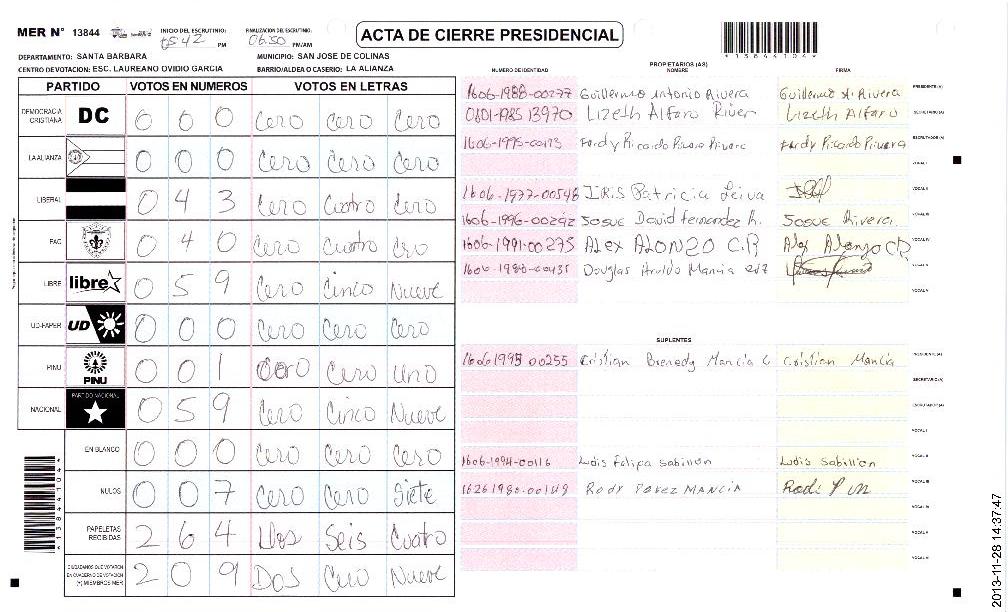 MER N° 13844
INICIO DEL ESCRUTINIO: 05:42 PM
FINALIZACION DEL ESCRUTINIO: 06:50 PM/AM
ACTA DE CIERRE PRESIDENCIAL
*13844104*
DEPARTAMENTO: SANTA BARBARA
MUNICIPIO: SAN JOSE DE COLINAS
CENTRO DE VOTACION: ESC. LAUREANO OVIDIO GARCIA
BARRIO/ALDEA O CASERIO: LA ALIANZA
PARTIDO VOTOS EN NUMEROS VOTOS EN LETRAS
DEMOCRACIA CRISTIANA DC 0 0 0 Cero Cero Cero
LA ALIANZA 0 0 0 Cero Cero Cero
LIBERAL 0 4 3 Cero Cuatro Cero
PAC 0 4 0 Cero Cuatro Cro
LIBRE libre 0 5 9 Cero Cinco Nueve
UD-FAPER UD 0 0 0 Cero Cero Cero
PINU PINU 0 0 1 Cero Cero Uno
NACIONAL PARTIDO NACIONAL 0 5 9 Cero Cinco Nueve
EN BLANCO 0 0 0 Cero Cero Cero
NULOS 0 0 7 Cero Cero Siete
PAPELETAS RECIBIDAS 2 6 4 Dos Seis Cuatro
CIUDADANOS QUE VOTARON EN CUADERNO DE VOTACION (+) MIEMBROS MER 2 0 9 Dos Cero Nueve
*13844104*
PROPIETARIOS (AS)
NUMERO DE IDENTIDAD NOMBRE FIRMA
1606-1988-00277 Guillermo Antonio Rivera Guillermo A Rivera PRESIDENTE (A)
0801-1985 13970 Lizeth Alfaro River Lizeth Alfaro SECRETARIO (A)
1606-1995-00173 Fardy Ricardo Rivera Rivera Fardy Ricardo Rivera ESCRUTADOR (A)
VOCAL I
1606-1977-00548 IRIS Patricia Leiva VOCAL II
1606-1996-00292 Josue David Fernandez R. Josue Rivera VOCAL III
1606-1991-00275 Alex ALONZO C.R Alex Alonzo CR VOCAL IV
1606-1988-00435 Douglas Arnldo Mancia VOCAL V
VOCAL VI
SUPLENTES
1606 1995 00255 Cristian Brenedy Mancia C Cristian Mancia PRESIDENTE (A)
SECRETARIO (A)
ESCRUTADOR (A)
VOCAL I
1606-1994-00116 Luis Felipa Sabillon Luis Sabillon VOCAL II
1626 1980-00149 Rody Perez MANCIA Rodi P M VOCAL III
VOCAL IV
VOCAL V
VOCAL VI
2013-11-28 14:37:47